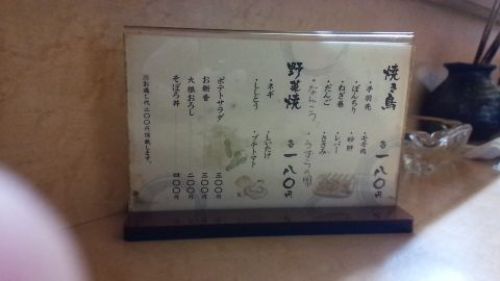 焼き鳥 各一八〇円
・手羽先
・ぼんちり
・ねぎ巻
・だんご
・なんこつ
・もも肉
・砂肝
・レバー
・ささみ
・うずらの卵
野菜焼 各一八〇円
・ネギ
・ししとう
・しいたけ
・プチトマト
ポテトサラダ 三〇〇円
お新香 三〇〇円
大根おろし 二〇〇円
そぼろ丼 四〇〇円